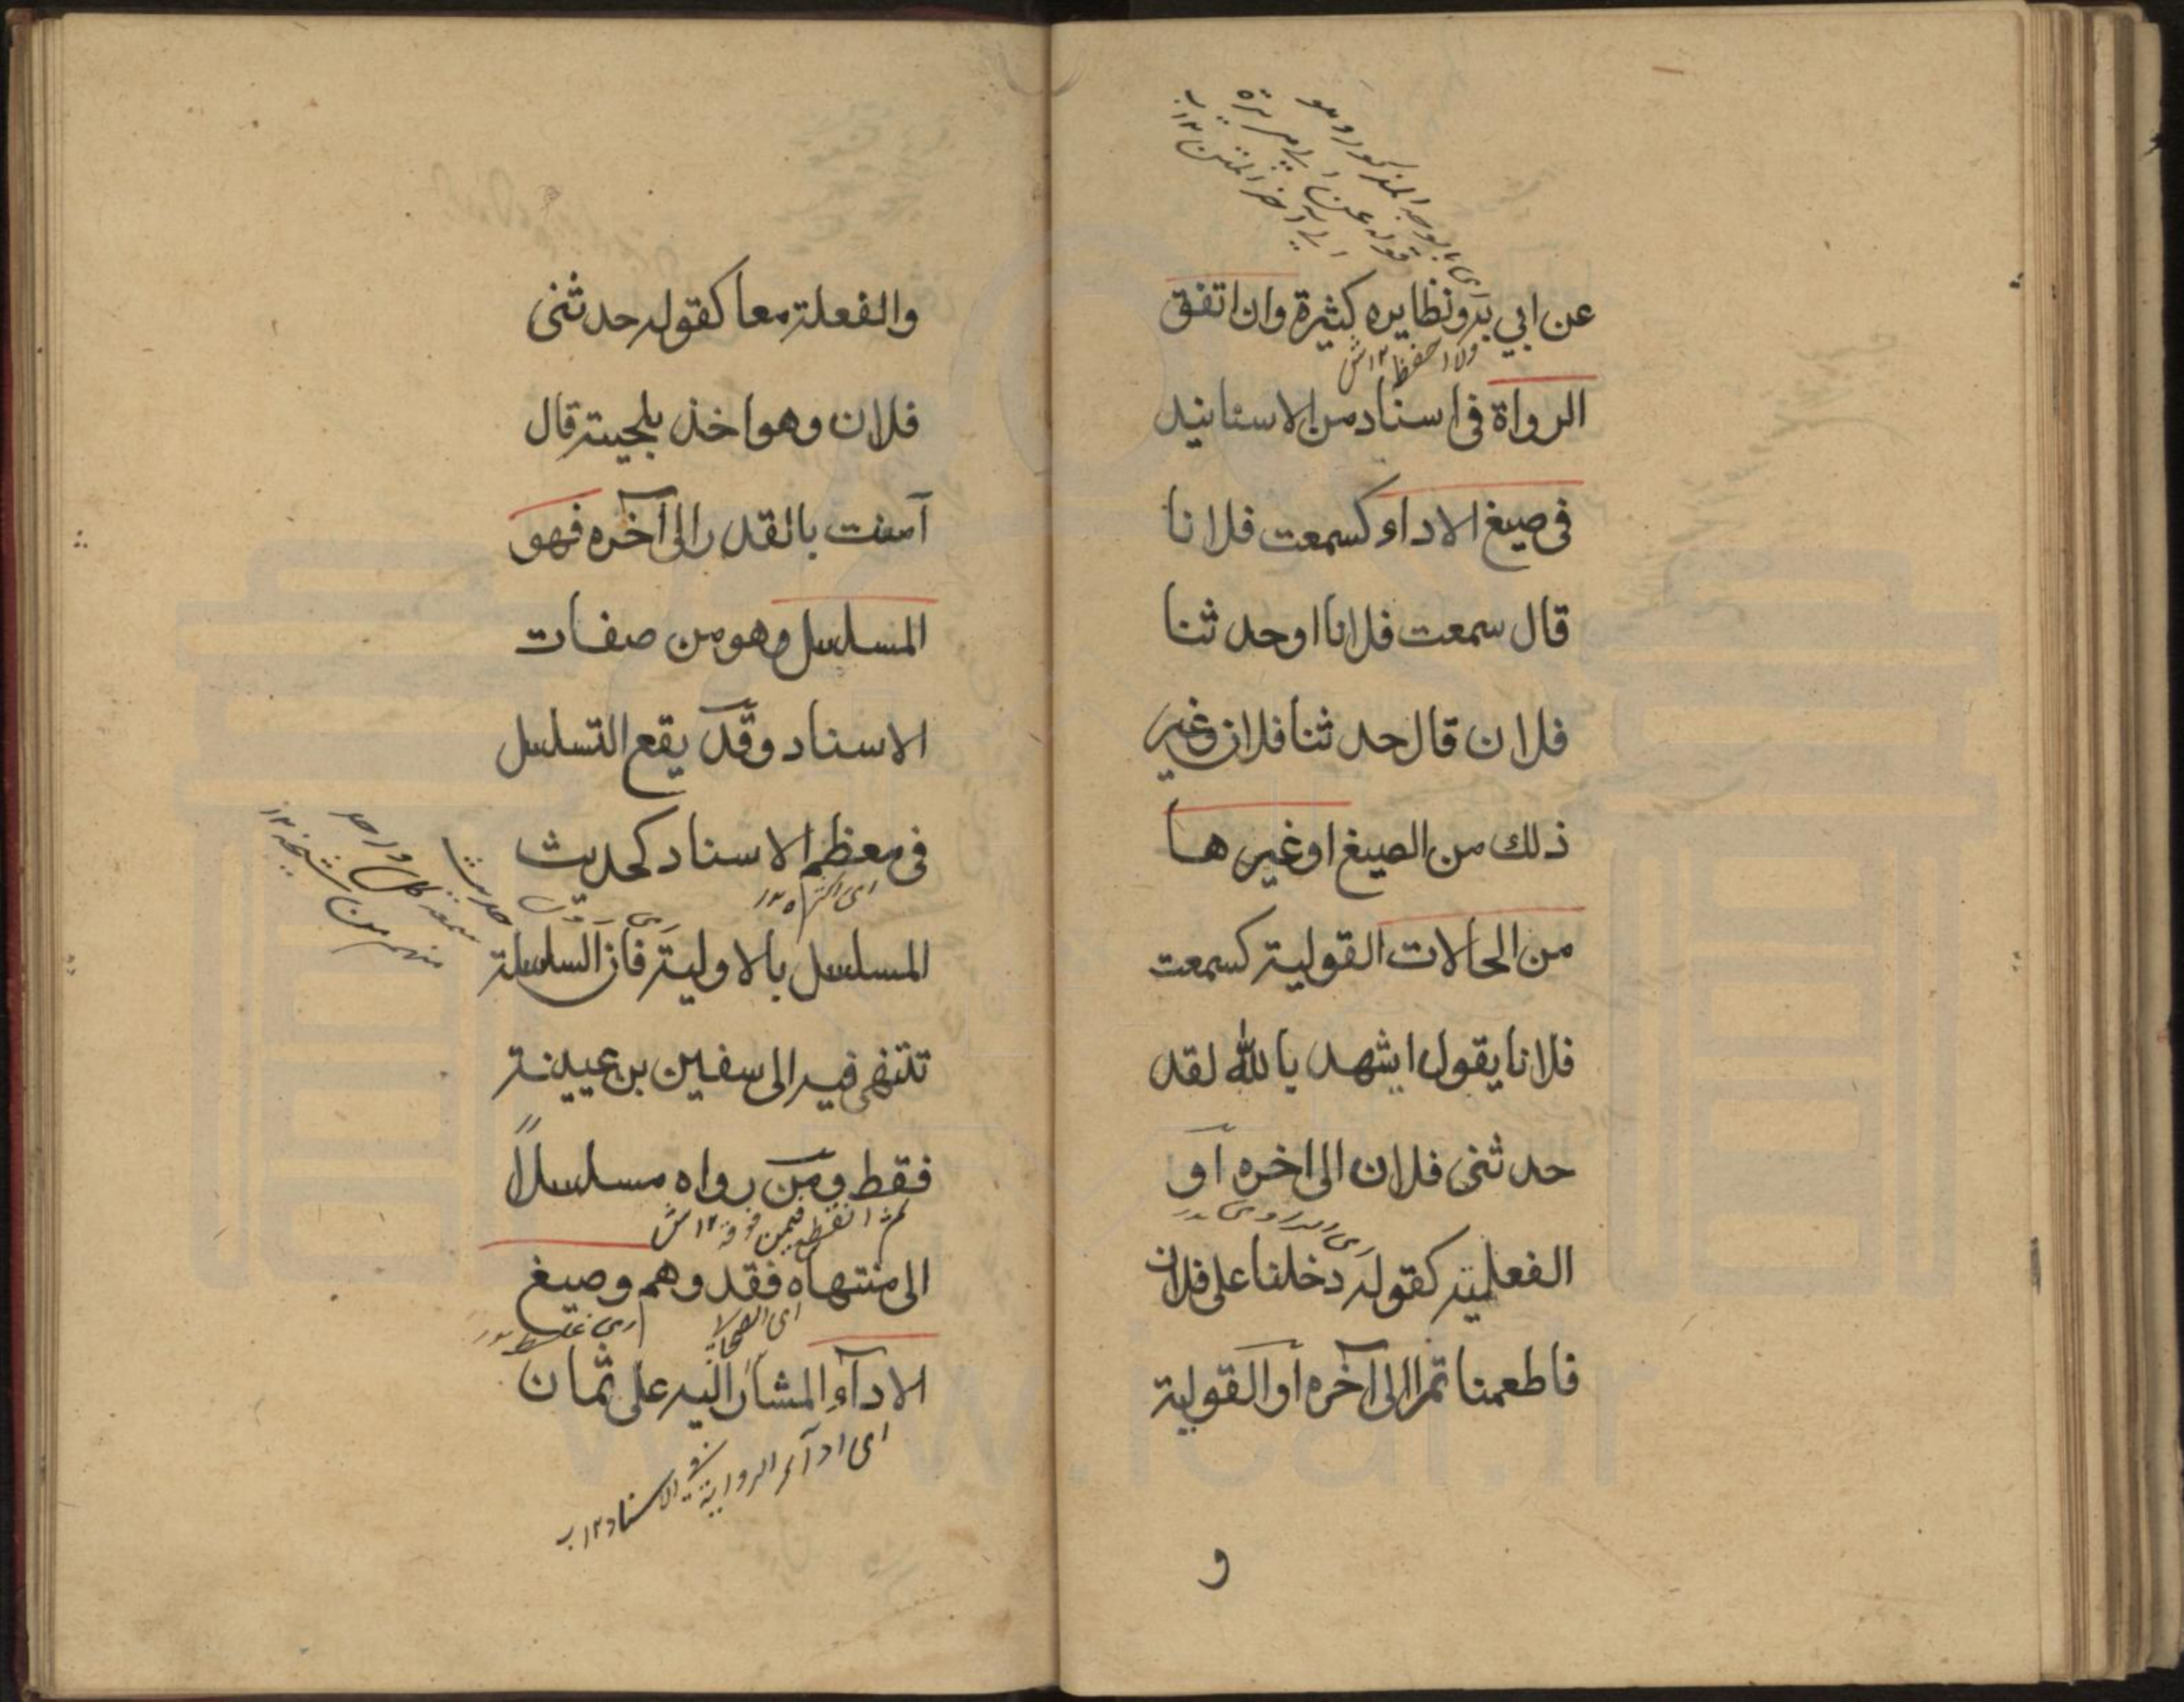 عن ابي بدونظايره كثيرة وان اتفق
الرواة فى اسناد من الاسانيد
فى صيغ الاداء كسمعت فلانا
قال سمعت فلانا اوحدثنا
فلان قال حدثنا فلان وغير
ذلك من الصيغ اوغيرها
من الحالات القولية كسمعت
فلانا يقول اشهد بالله لقد
حدثنى فلان الى اخره او
الفعلية كقوله دخلنا على فلان
فاطعمنا تمرا الى آخره او القولية
و
والفعلة معا كقوله حدثنى
فلان وهو اخذ بلحيته قال
آمنت بالقدر الى آخره فهو
المسلسل وهو من صفات
الاسناد وقد يقع التسلسل
فى معظم الاسناد كحديث
المسلسل بالاولية فان السلسلة
تنتهى فيه الى سفين بن عيينة
فقط ومن رواه مسلسلاً
الى منتهاه فقد وهم وصيغ
اى غلط
الادآء المشار اليه على ثمان
اى ادآء الرواية فى الاسناد ١٢ ب